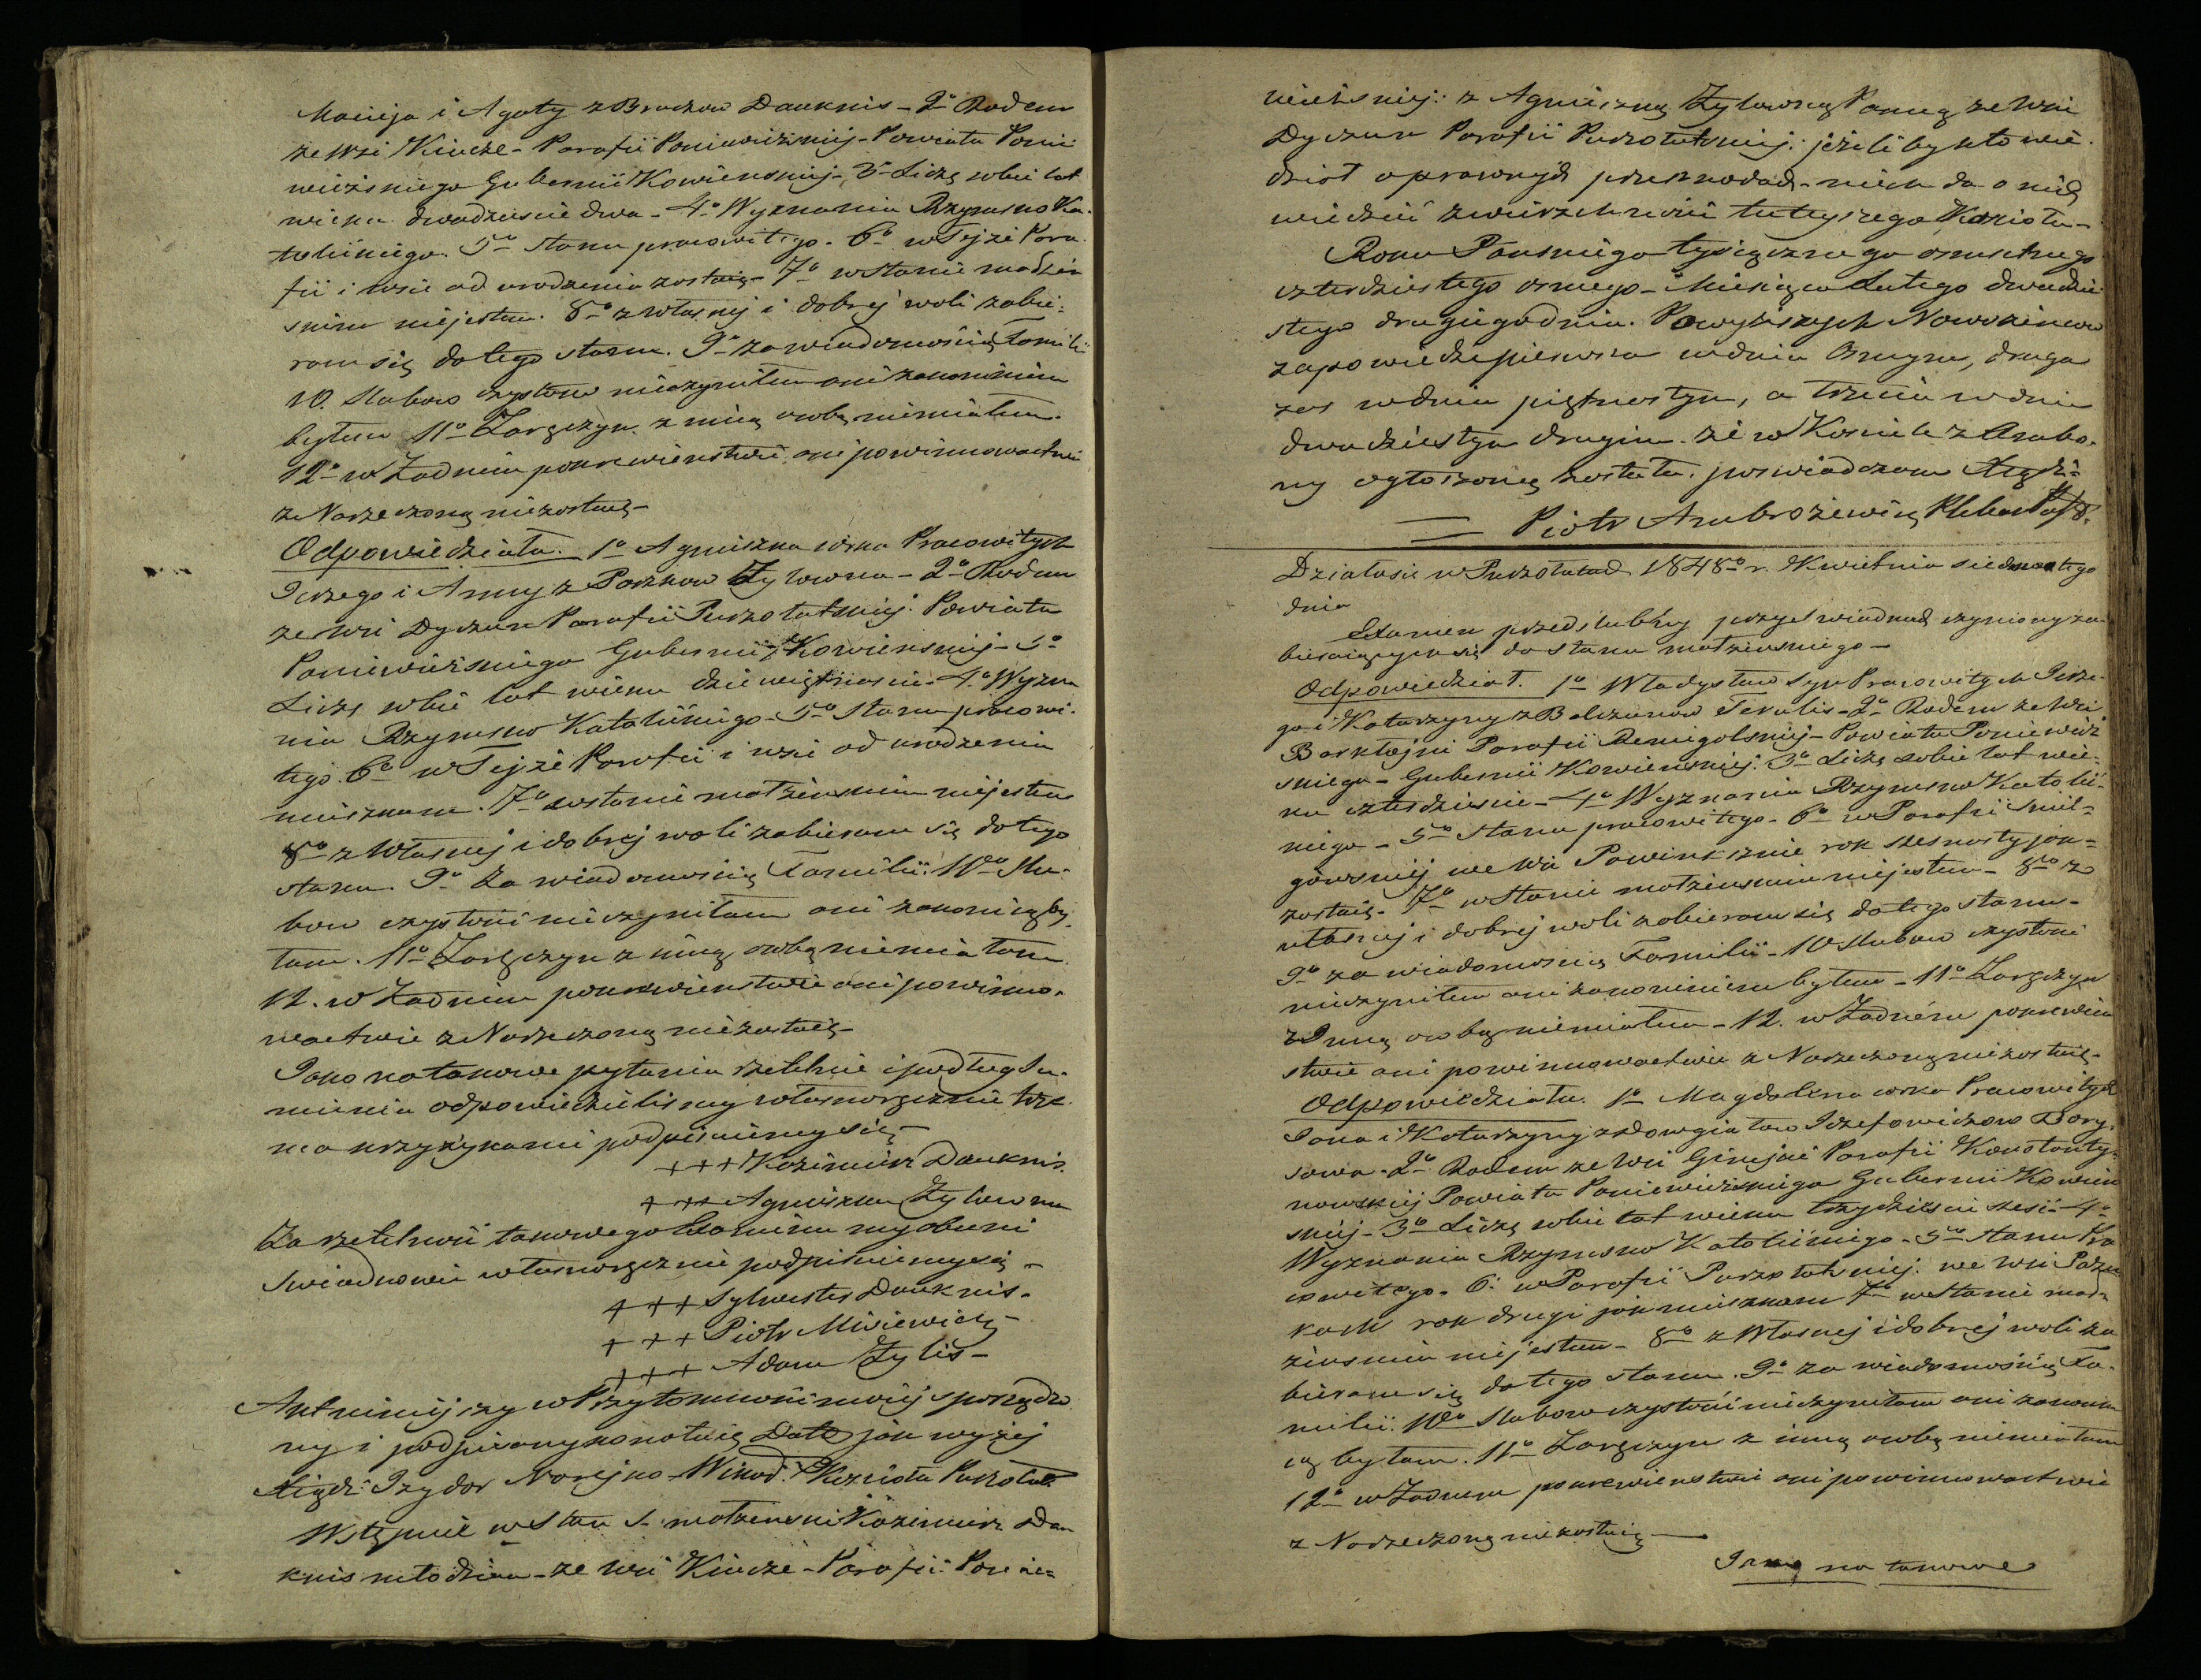 Macieja i Agaty z Braczow Dauknis - 2° Rodem
ze Wsi Kiucze - Parafii Poniewiżskiej - Powiatu Ponie-
wieżskiego Gubernii Kowieńskiej - 3° Liczę sobie lat
wieku dwadzieście dwa - 4° Wyznania Rzymsko Ka-
tolickiego. 5° stanu pracowitego. 6° w Tejże Para-
fii i wsie od urodzenia zostaię - 7° w Stanie małżeń-
skim niejestem. 8° z własnej i dobrej woli zabie-
ram się do tego stanu. 9° za wiadomością Familii
10. Slubow czystow nieczyniłem ani zakonnikiem
byłem 11° Zaręczyn z inną osobą niemiałem.
12° w Żadnim pokrewieństwie ani powinowactwie
z Narzeczoną niezostaię -
Odpowiedziała. 1° Agnieszka córka Pracowitych
Jerzego i Anny z Paszkow Żylowna - 2° Rodem
ze Wsi Dyczun Parafii Puszołatskiej. Powiatu
Poniewieżskiego Gubernii Kowieńskiej - 3°
Liczę sobie lat wieku dziewiętnaście. 4° Wyzna-
nia Rzymsko Katolickiego - 5° Stanu pracowi-
tego. 6° w Tejże Parafii i wsi od urodzenia
mieszkam. 7° w stanie małżeńskim niejestem
8° z Własnej i dobrej woli zabieram się do tego
stanu. 9° Za wiadomością Familii. 10° Slu-
bow czystości nieczyniłam ani zakonicą by-
łam. 11° Zaręczyn z inną osobą niemiałam
12. w Żadnim pokrewieństwie ani powino-
wactwie z Narzeczoną niezostaię -
Jako na takowe pytania rzetelnie i podług Su-
mienia odpowiedzieliśmy własnoręcznie trze-
ma krzyżykami podpisuiemy się -
+++ Kazimierz Dauknis.
+++ Agnieszka Żylowna
Za rzetelność takowego Examinu my obecni
Swiadkowie własnoręcznie podpisuiemy się -
+++ Sylwester Dauknis -
+++ Piotr Misiewicz -
+++ Adam Żylis -
Akt niniejszy w Przytomności moiej sporządzo
ny i podpisany konotuię Datą jak wyżej
Xiądz Izydor Norejko Wikar. Kościoła Puszołat.
Wstępuie w Stan S. małżeński Kazimierz Dau
knis młodzian - ze wsi Kiucze - Parafii Ponie-
wieżskiej: z Agnieszką Żylowną Panną ze Wsi
Dyczun Parafii Puszołatskiej: jeżeli by kto wie-
dział o prawnych przeszkodach - niech da o nich
wiedzieć zwierzchności tutejszego Kościoła -
Roku Pańskiego tysiącznego osmsetnego
czterdziestego osmego - Miesiąca Lutego dwudzie
stego drugiego dnia. Powyższych Nowożeńcow
zapowiedze pierwsza w dniu Osmym, druga
zas w dniu piętnastym, a trzecia w dniu
dwudziestym drugim. że w Kosciele z Ambo-
ny ogłoszoną została. poswiadczam Xiądz
Piotr Ambrożewicz Pleban
Działo się w Puszołatach 1848° r. Kwietnia siedmnastego
dnia
Examen przedslubny przy Swiadkach czyniony za-
bieraiącym się do stanu małżeńskiego -
Odpowiedział. 1° Władysław syn Pracowitych Jerze-
go i Katarzyny z Balczunow Tekulis - 2° Rodem ze Wsi
Barkłajni Parafii Remigolskiej - Powiatu Poniewież
skiego - Gubernii Kowieńskiej. 3° Liczę sobie lat wie-
ku czterdzieście - 4° Wyznania Rzymsko Katolic-
kiego - 5° Stanu pracowitego - 6° w Parafii Smil-
gowskiej we Wsi Powinkcznie rok szesnasty jak -
zostaię - 7° w Stanie małżeńskim niejestem - 8° z
własnej i dobrej woli zabieram się do tego stanu -
9° za wiadomością Familii - 10 Slubow czystości
nieczyniłem ani zakonnikiem byłem - 11° Zaręczyn
z Inną osobą niemiałem - 12. w Żadném pokrewień
stwie ani powinowactwie z Narzeczoną niezostaię -
Odpowiedziała. 1° Magdalena corka Pracowitych
Jana i Katarzyny z Dowgiałow Jozefowiczow Bory-
sowa - 2° Rodem ze Wsi Giniejci Parafii Konstanty-
nowskiej Powiatu Poniewieżskiego Gubernii Kowień
skiej - 3° Liczę sobie lat wieku trzydzieści sześć - 4°
Wyznania Rzymsko Katolickiego - 5° Stanu Pra
cowitego. 6. w Parafii Puszołatskiej. we Wsi
kach rok drugi jak mieszkam 7° w Stanie mał-
żeńskim niejestem - 8° z Własnej i dobrej woli za
bieram się do tego stanu. 9° za wiadomością Fa-
milii. 10° Slubow czystości nieczyniłam ani zakonni
cą byłam. 11° Zaręczyn z inną osobą niemiałam
12° w Żadnem pokrewieństwie ani powinowactwie
z Narzeczoną niezostaię -
Jako na takowe